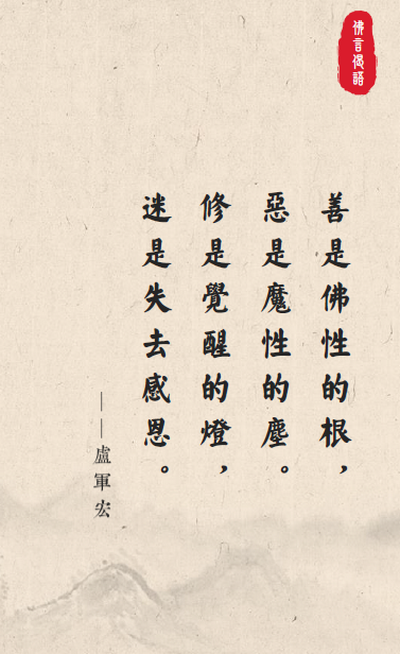 佛言偈語
善是佛性的根，
惡是魔性的塵。
修是覺醒的燈，
迷是失去感恩。
——盧軍宏